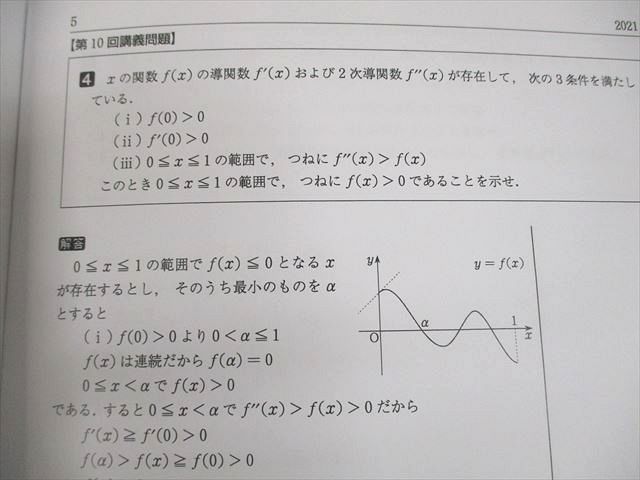 5
2021
【第10回講義問題】
4 xの関数f(x)の導関数f′(x)および2次導関数f″(x)が存在して，次の3条件を満たし
ている．
(ⅰ) f(0)＞0
(ⅱ) f′(0)＞0
(ⅲ) 0≦x≦1の範囲で，つねにf″(x)＞f(x)
このとき0≦x≦1の範囲で，つねにf(x)＞0であることを示せ．
解答
0≦x≦1の範囲でf(x)≦0となるx
が存在するとし，そのうち最小のものをα
とすると
(ⅰ) f(0)＞0より0＜α≦1
f(x)は連続だからf(α)=0
0≦x＜αでf(x)＞0
である．すると0≦x＜αでf″(x)＞f(x)＞0だから
f′(x)≧f′(0)＞0
f(α)＞f(x)≧f(0)＞0
y
y=f(x)
α
1
O
x